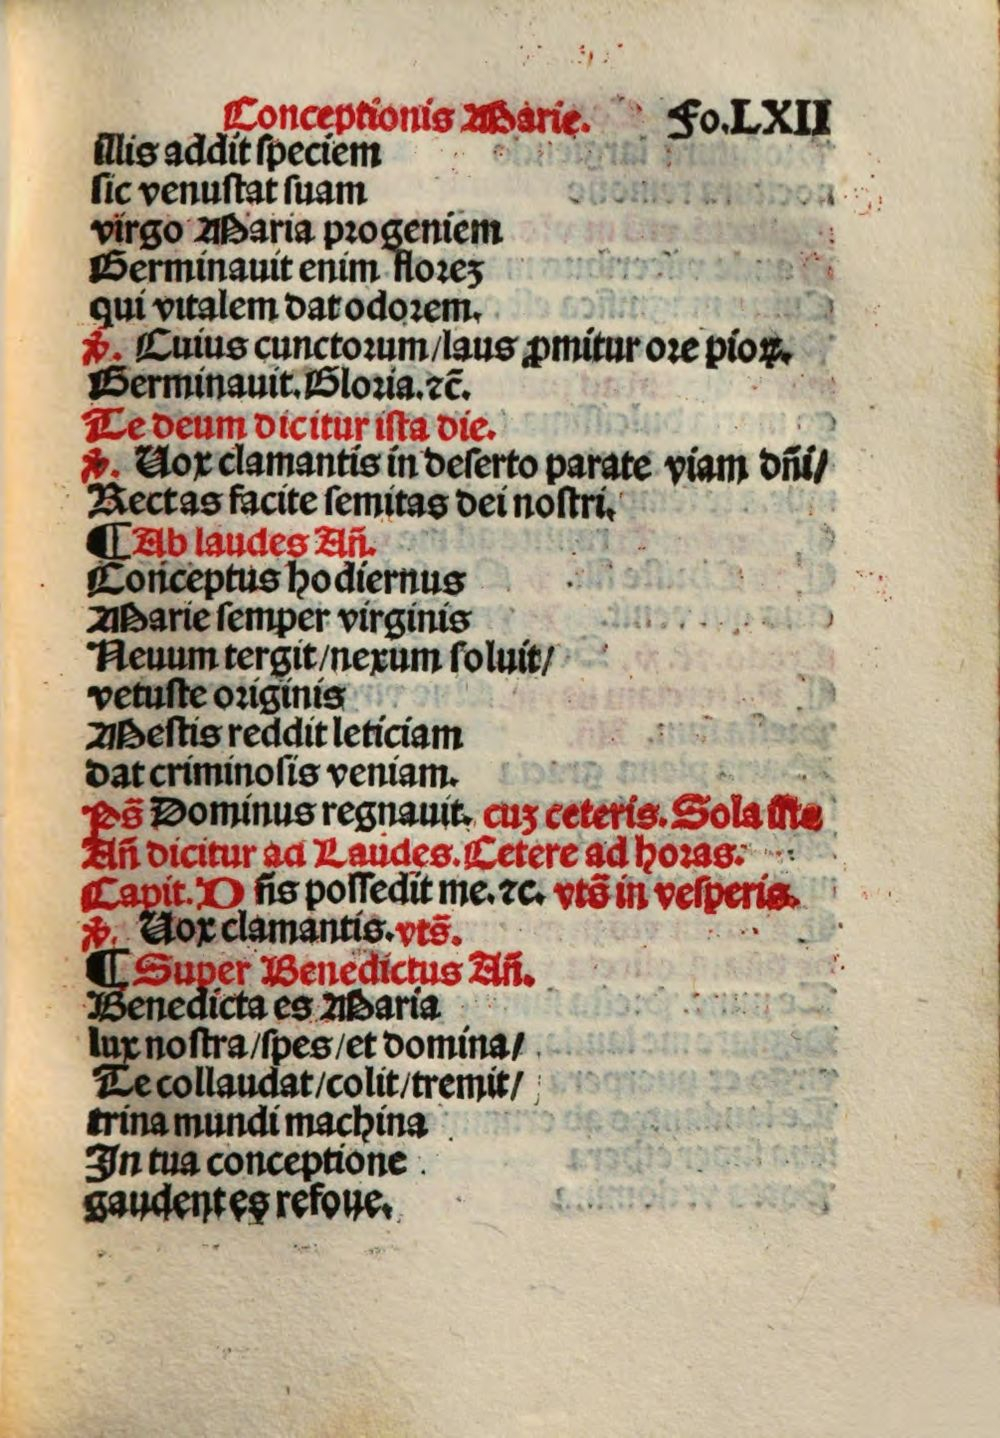 Conceptionis Marie. Fo.LXII
illis addit speciem
sic venustat suam
virgo Maria progeniem
Germinauit enim floreʒ
qui vitalem dat odorem.
℣. Cuius cunctorum/laus ꝓmitur ore pioꝝ.
Germinauit. Gloria. ⁊c̃.
Te deum dicitur ista die.
℣. Uox clamantis in deserto parate viam dñi/
Rectas facite semitas dei nostri.
¶ Ab laudes Añ.
Conceptus hodiernus
Marie semper virginis
Neuum tergit/nexum soluit/
vetuste originis
Mestis reddit leticiam
dat criminosis veniam.
Ps̃ Dominus regnauit. cuʒ ceteris. Sola iste
Añ dicitur ad Laudes. Cetere ad horas.
Capit. D ñs possedit me. ⁊c. vts̃ in vesperis.
℣. Uox clamantis. vts̃.
¶ Super Benedictus Añ.
Benedicta es Maria
lux nostra/spes/et domina/
Te collaudat/colit/tremit/
trina mundi machina
In tua conceptione
gaudentes refoue.